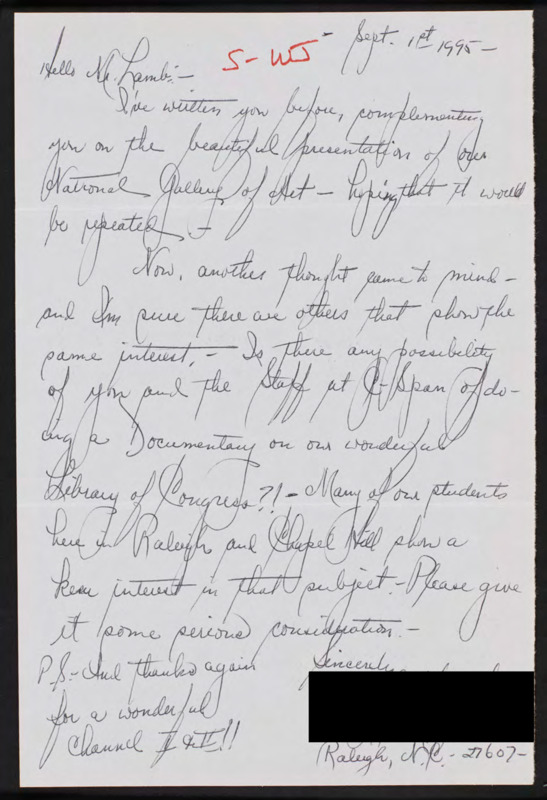 Sept. 1st 1995-
S-WJ
Hello Mr. Lamb:-
I've written you before, complementing
you on the beautiful presentation of our
National Gallery of Art - hoping that it would
be repeated -
Now, another thought came to mind -
and I'm sure there are others that show the
same interest. - Is there any possibility
of you and the Staff at C-Span of do-
ing a Documentary on our wonderful
Library of Congress?! - Many of our students
here in Raleigh and Chapel Hill show a
keen interest in that subject. - Please give
it some serious consideration. -
Sincerely
P.S. - And thanks again
for a wonderful
Channel II !!
Raleigh, N.C. - 27607-